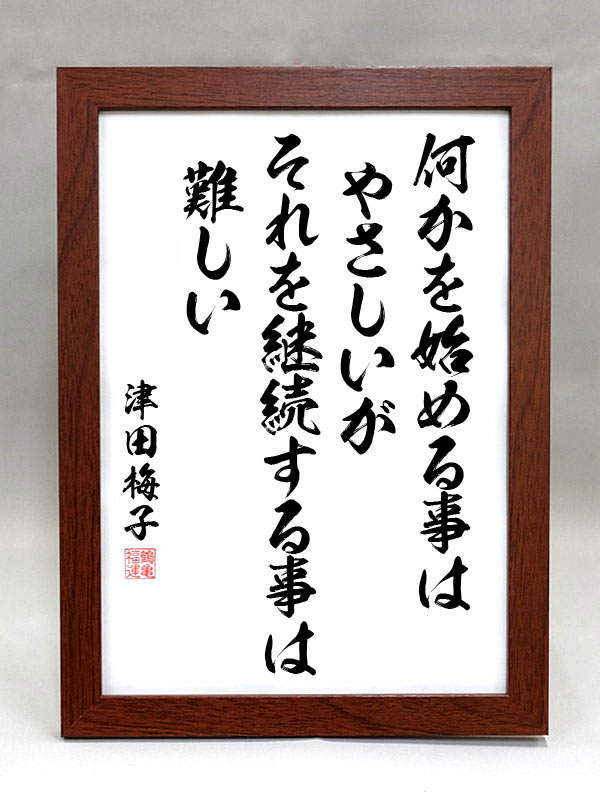 何かを始める事は
やさしいが
それを継続する事は
難しい
津田梅子
鶴亀
福運